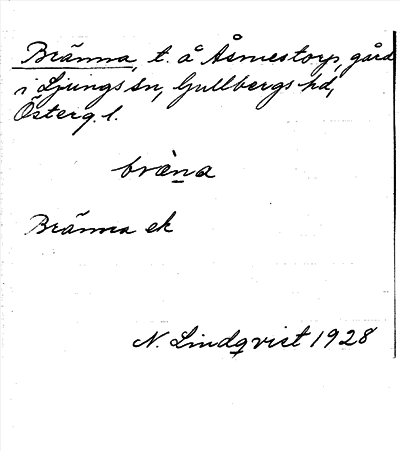 Bränna, t. å Åsmestorp, gård
i Ljungs sn, Gullbergs hd,
Österg. l.
bræ̀na
Bränna ek
N. Lindqvist 1928